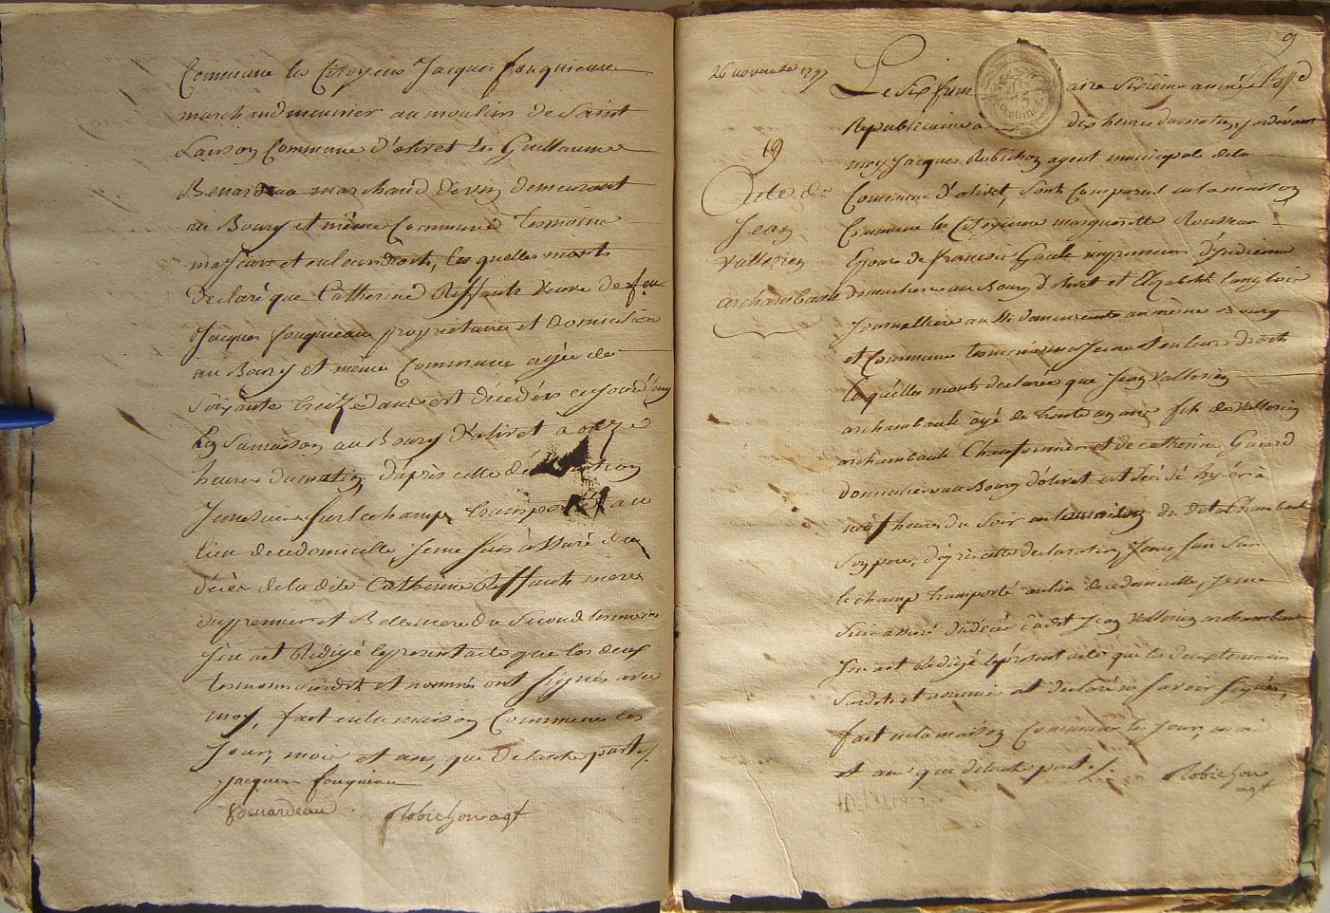 Commune les Citoyens Jacques fouquieau
marchand meunier au moulin de Saint
Commune d'olivet et Guillaume
Benardeau marchand de vin demeurant
au Bourg et même Commune temoins
majeurs et en leurs droits, lesquelles mont
declaré que Catherine Riffault veuve de feu
Jacques fouquieau proprietaire et domicilié
au Bourg et même Commune agée de
Soixante treize ans est décédée ce jourd'huy
En Sa maison au Bourg d'olivet a onze
heures du matin, d'après cette déclaration
Je me suis sur le champ transporté au
lieu de ce domicille, je me suis assuré du
décès de la dite Catherine Riffault mere
du premier et Belle mere du Second temoins
J'en ait Rédigé le present acte que les deux
temoins et nommés ont Signés avec
moy, fait en la maison Commune les
Jour, mois et an, que de lautre part
Jacques fouquieau
Benardeau Robichon agt
9
26 novembre 1797
Le Six frimaire Sixieme année
Republicaine a dix heures du matin, pardevant
moy Jacques Robichon agent municipale de la
Commune d'olivet, Sont Comparus en la maison
Commune les Citoyenne margueritte Rousseau
Epouse de francois imprimeur d'indienne
demeurant au Bourg d'olivet et Elizabeth langlois
Journalliere aussi demeurante au même Bourg
et Commune temoins majeures et en leurs droits
lesquelles mont declarée que Jean Vallerien
archambault agé de trente un ans fils de Vallerien
archambault et de catherine Gerard
domiciliers au Bourg d'olivet est décédé hyer a
neuf heures du Soir en la maison du dit archambault
Son pere, d'après cette declaration, Je me suis Sur
le champ transporté au lieu de ce domicille, Je me
Suis assuré du décès du dit Jean Vallerien archambault
J'en ait Rédigé le présent acte que les deux temoins
Susdits et nommés ont declaré ne Savoir Signés,
fait en la maison Commune les Jour, mois
et an que de lautre part Robichon
agt
19
Acte de
Jean
Vallerien
archambault